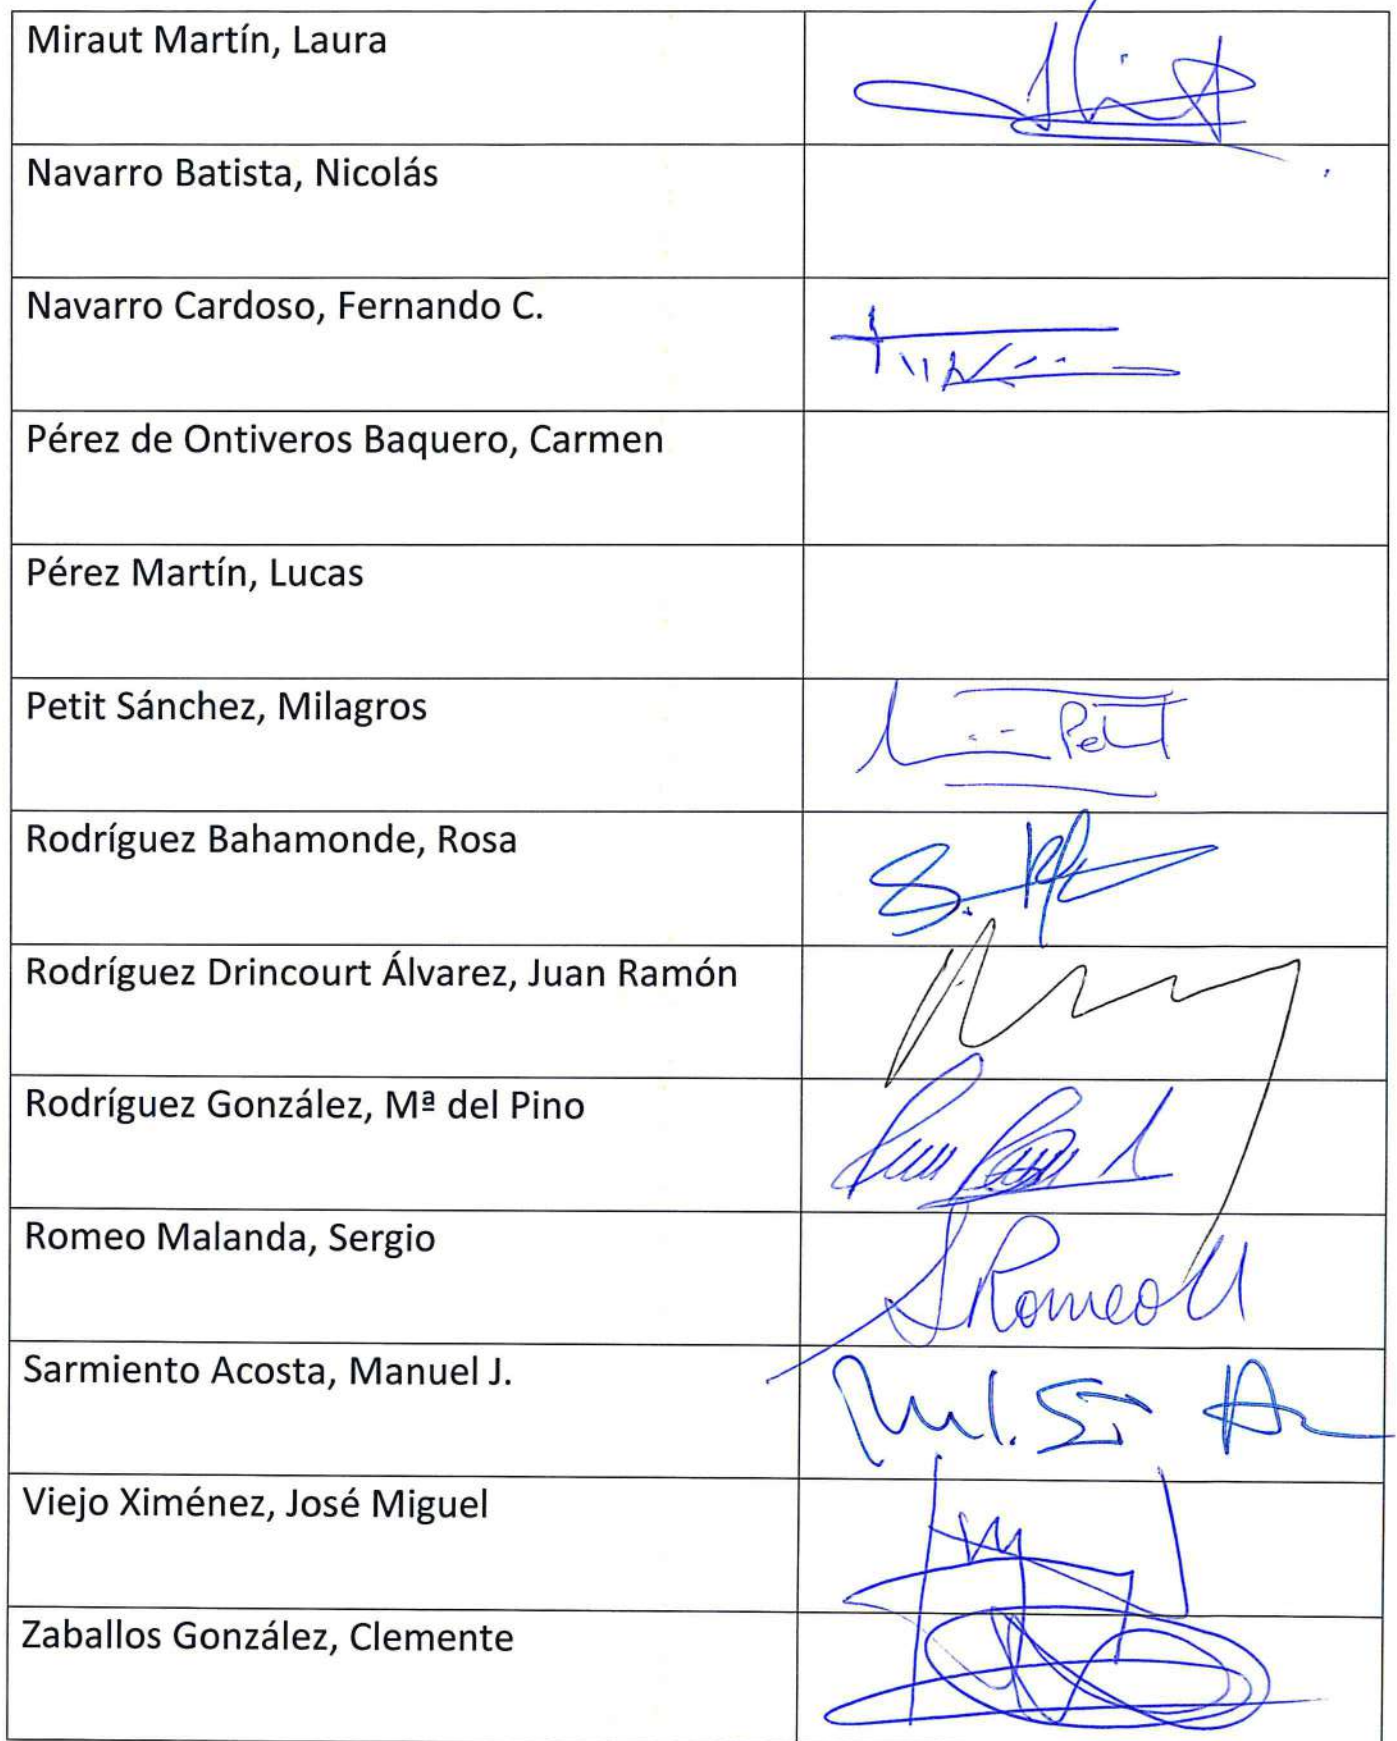 Miraut Martín, Laura
Navarro Batista, Nicolás
Navarro Cardoso, Fernando C.
Pérez de Ontiveros Baquero, Carmen
Pérez Martín, Lucas
Petit Sánchez, Milagros
Petit
Rodríguez Bahamonde, Rosa
Rodríguez Drincourt Álvarez, Juan Ramón
Rodríguez González, Mª del Pino
Romeo Malanda, Sergio
SRomeoM
Sarmiento Acosta, Manuel J.
Viejo Ximénez, José Miguel
Zaballos González, Clemente